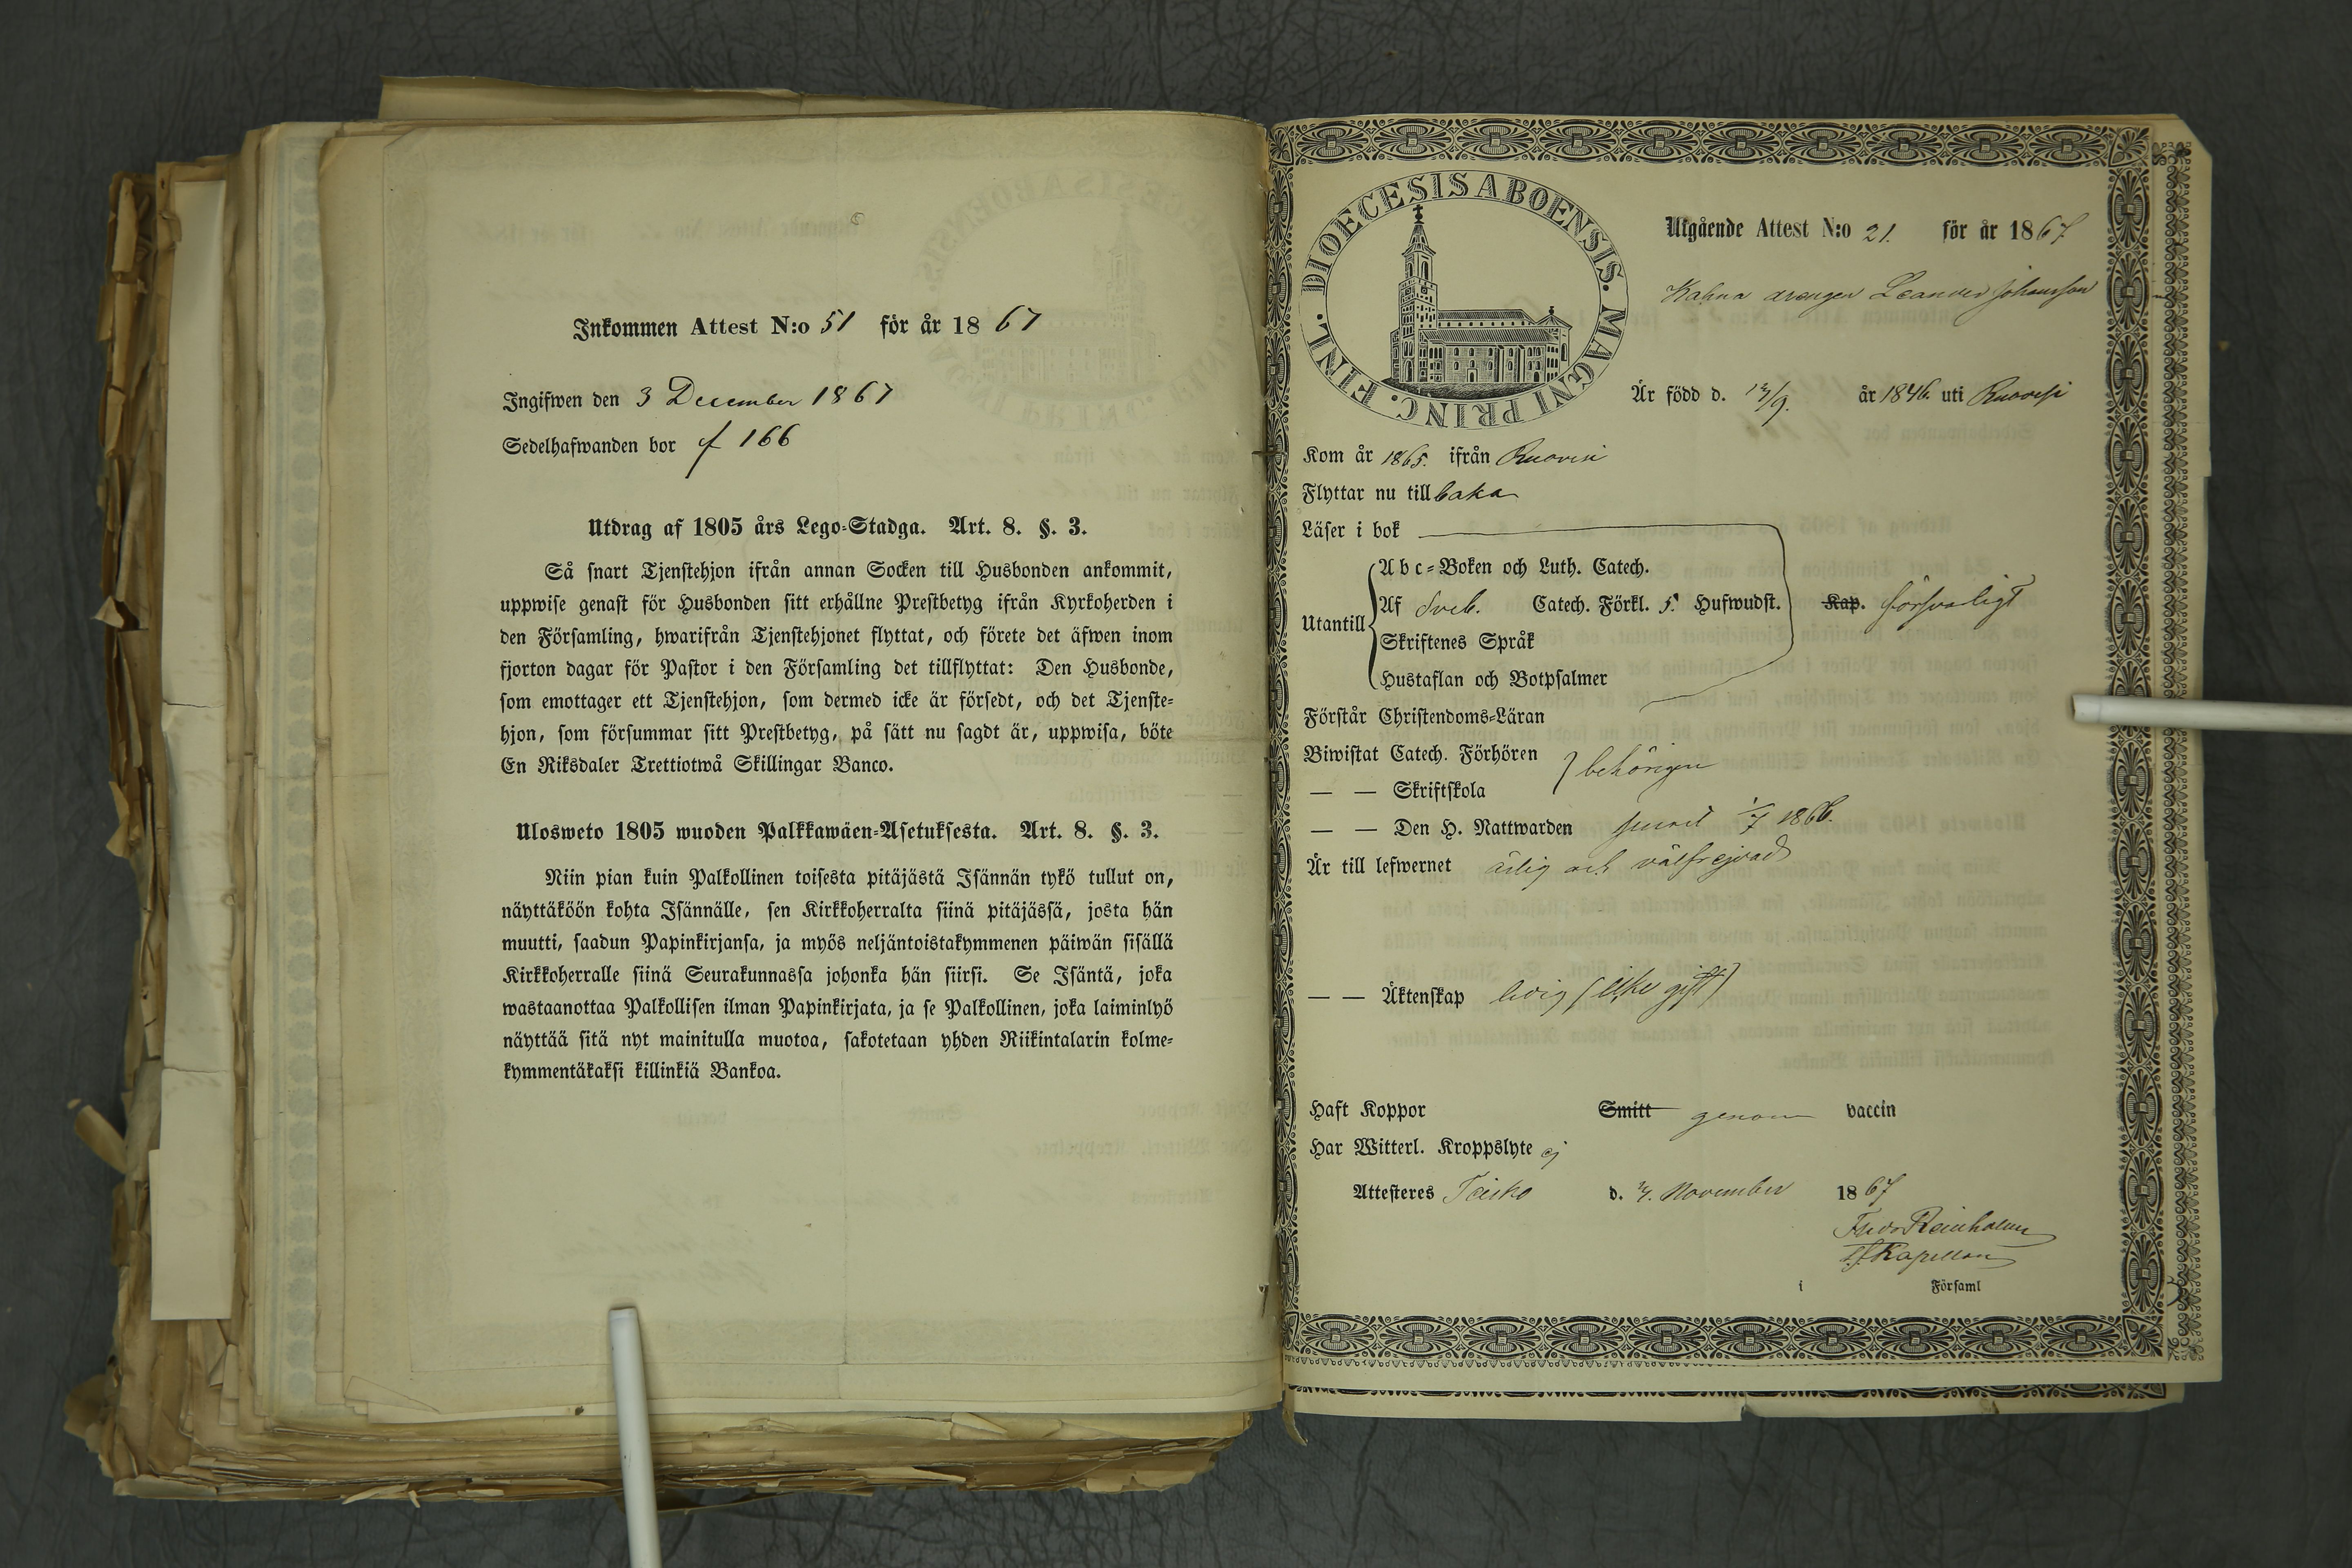 Inkommen Attest N:o 51 för år 1867
Ingifwen den 3 December 1867
Sedelhafwanden bor f 166
Utdrag af 1805 års Lego-Stadga. Art. 8. §. 3.
Så snart Tjenstehjon ifrån annan Socken till Husbonden ankommit,
uppwise genast för Husbonden sitt erhållne Prestbetyg ifrån Kyrkoherden i
den Församling, hwarifrån Tjenstehjonet flyttat, och förete det äfwen inom
fjorton dagar för Pastor i den Församling det tillflyttat: Den Husbonde,
som emottager ett Tjenstehjon, som dermed icke är försedt, och det Tjenste-
hjon, som försummar sitt Prestbetyg, på sätt nu sagdt är, uppwisa, böte
En Riksdaler Trettiotwå Skillingar Banco.
Ulosweto 1805 wuoden Palkkawäen-Asetuksesta. Art. 8. §. 3.
Niin pian kuin Palkollinen toisesta pitäjästä Isännän tykö tullut on,
näyttäköön kohta Isännälle, sen Kirkkoherralta siinä pitäjässä, josta hän
muutti, saadun Papinkirjansa, ja myös neljäntoistakymmenen päiwän sisällä
Kirkkoherralle siinä Seurakunnassa johonka hän siirsi. Se Isäntä, joka
wastaanottaa Palkollisen ilman Papinkirjata, ja se Palkollinen, joka laiminlyö
näyttää sitä nyt mainitulla muotoa, sakotetaan yhden Riikintalarin kolme-
kymmentäkaksi killinkiä Bankoa.
DIOECESIS ABOENSIS. MAGNI PRINC. FINL.
Utgående Attest N:o 21. för år 1867
Kahna drängen Leander Johansson
Är född d. /9. år 1846. uti Ruovesi
Kom år 1865. ifrån Ruovesi
Flyttar nu tillbaka
Läser i bok
Utantill
Abc-Boken och Luth. Catech.
Af Sveb. Catech. Förkl. 5. Hufwudst. Kap. försvarligt
Skriftenes Språk
Hustaflan och Botpsalmer
Förstår Christendoms-Läran
Biwistat Catech. Förhören
behörigen
— — Skriftskola
— — Den H. Nattwarden senast 1/7 1866.
Är till lefwernet ärlig och välfrejdad
— — Äktenskap ledig (icke gift)
Haft Koppor Smitt genom vaccin
Har Witterl. Kroppslyte ej
Attesteres Teisko d. November 1867
Reinholm
Kapellan
i Församl